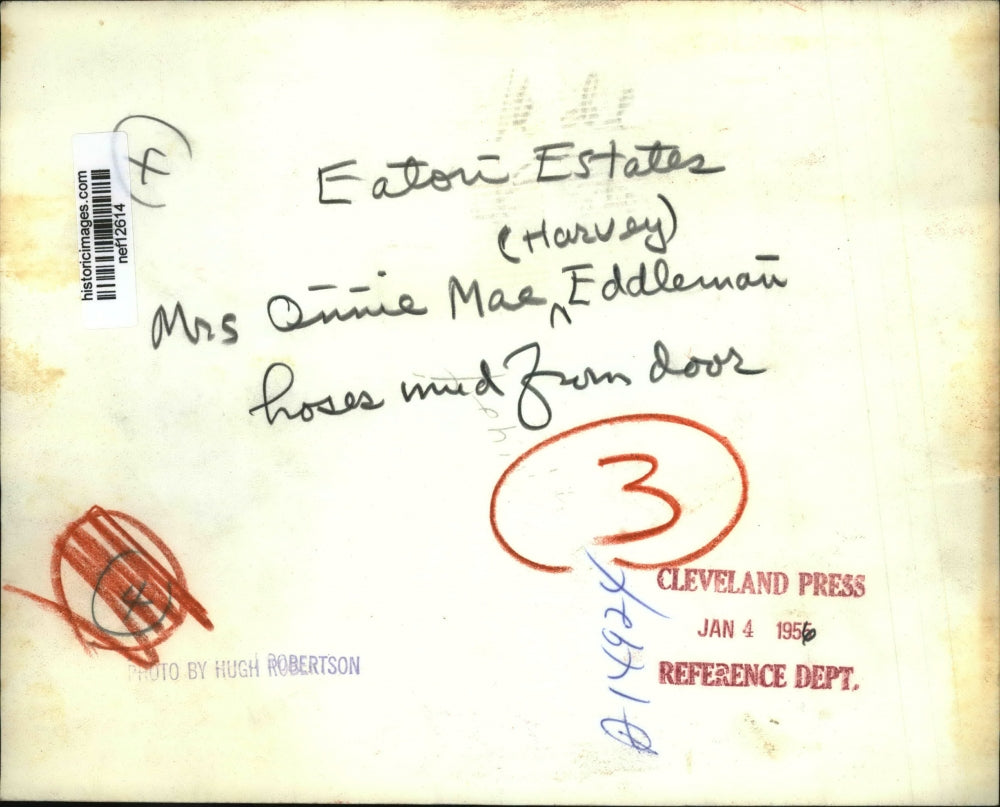 4
historicimages.com
nef12614
Eaton Estates
(Harvey)
Mrs Annie Mae ^ Eddleman
hoses mud from door
3
4
CLEVELAND PRESS
JAN 4 1956
REFERENCE DEPT.
PHOTO BY HUGH ROBERTSON